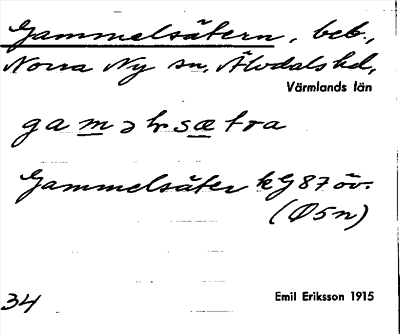 Gammelsätern, beb.,
Norra Ny sn, Älvdals hd,
Värmlands län
gaməlsætra
Gammelsäter kG 87 öv.
(Ø5n)
34
Emil Eriksson 1915